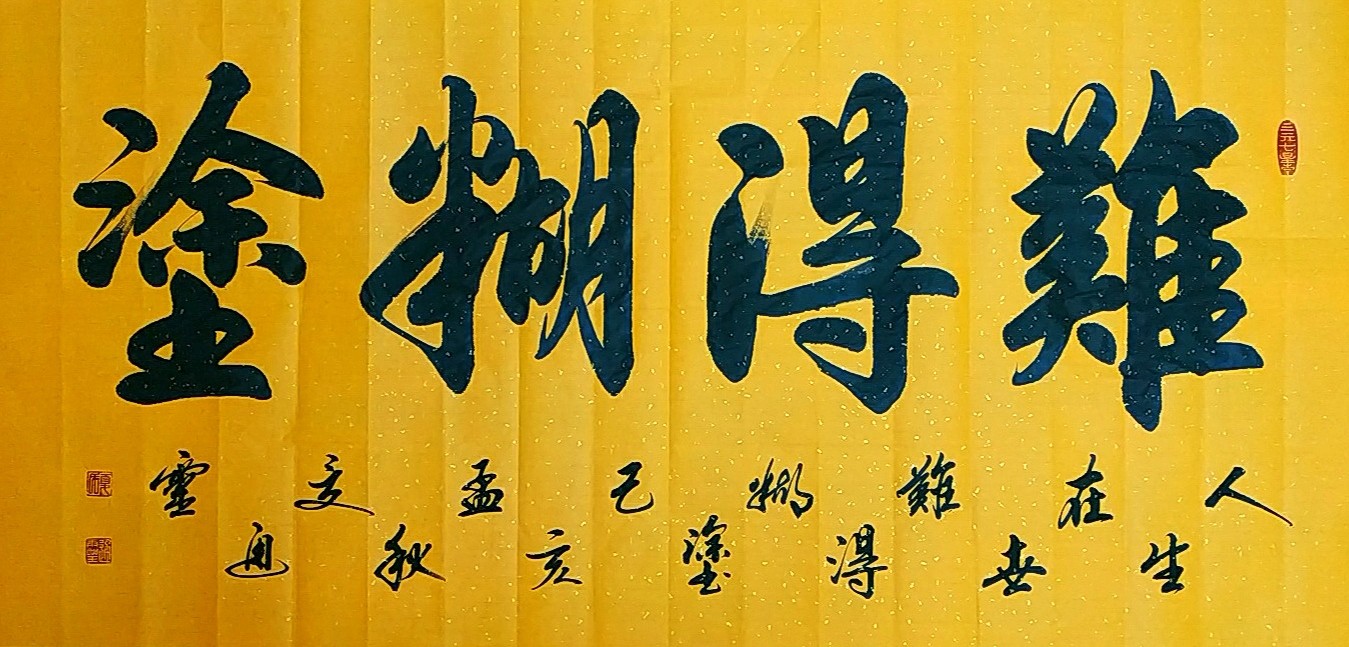 難得糊塗
人生在世難得糊塗己亥孟秋夏通靈